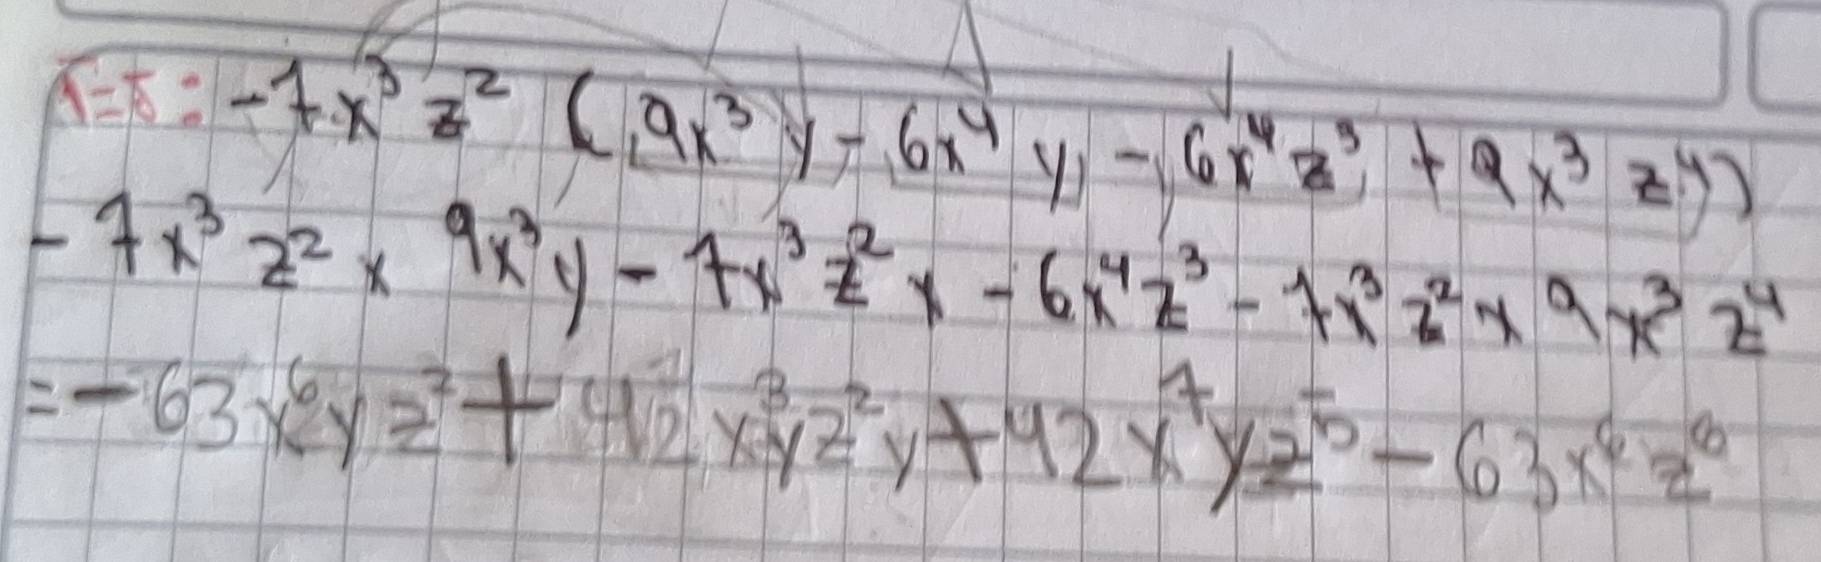 -7x³ z² (9x³ y - 6x⁴ y - 6x⁴ z³ + 9x³ z⁴)
- 7x³ z² x 9x³ y - 7x³ z² x - 6x⁴ z³ - 7x³ z² x 9x³ z⁴
= - 63x⁶yz² + 42x³yz²y + 42x⁷yz⁵ - 63x⁶z⁸